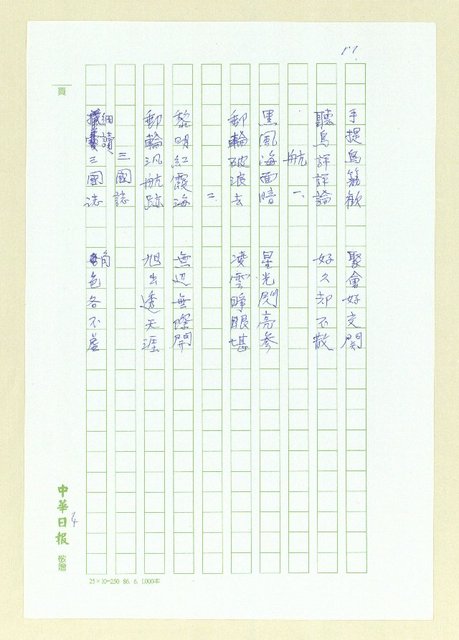 手提鳥籠歡　聚會好交開
聽鳥評評論　好久都不散
航
一、
黑風海面暗　星光閃亮參
郵輪破浪去　凌雲睜眼堪
二、
黎明紅霞海　無邊無際開
郵輪汎航跡　旭出透天涯
三國誌
細讀三國誌　角色各不差
頁
中華日報 敬贈
25×10=250 86. 6. 1,000本